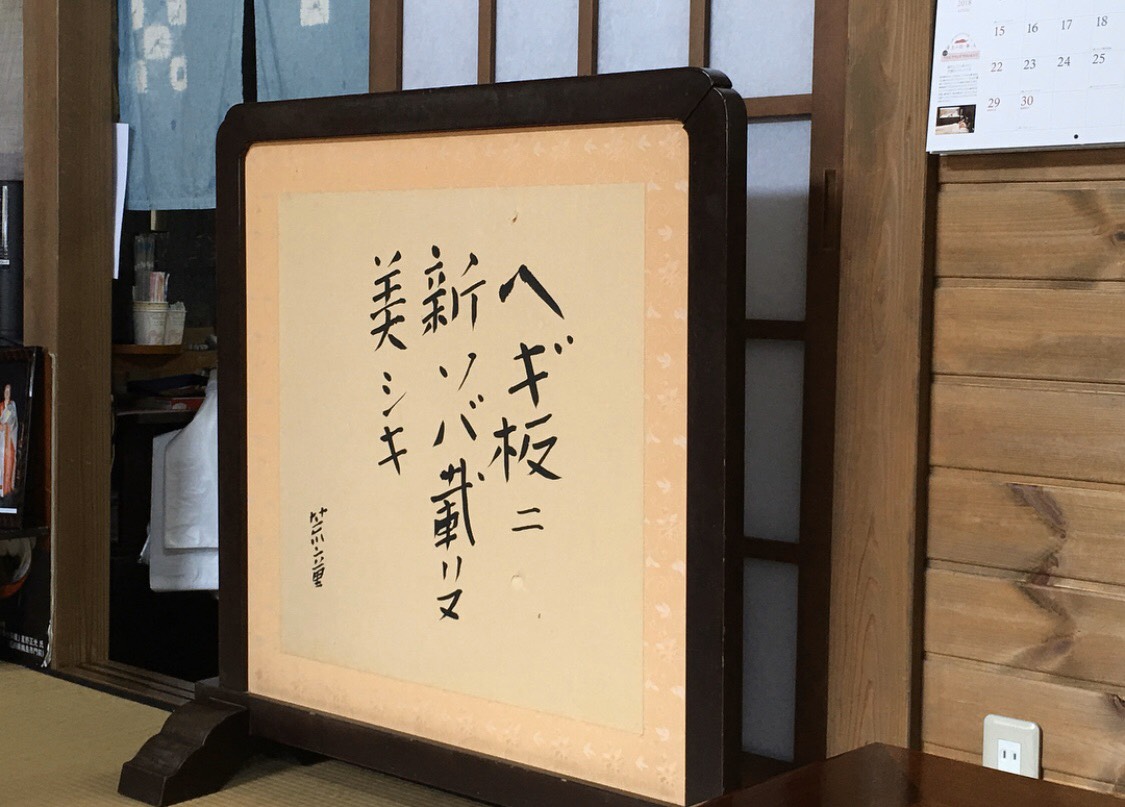 ヘギ板ニ
新ソバ載リヌ
美シキ
15 16 17 18
22 23 24 25
29 30